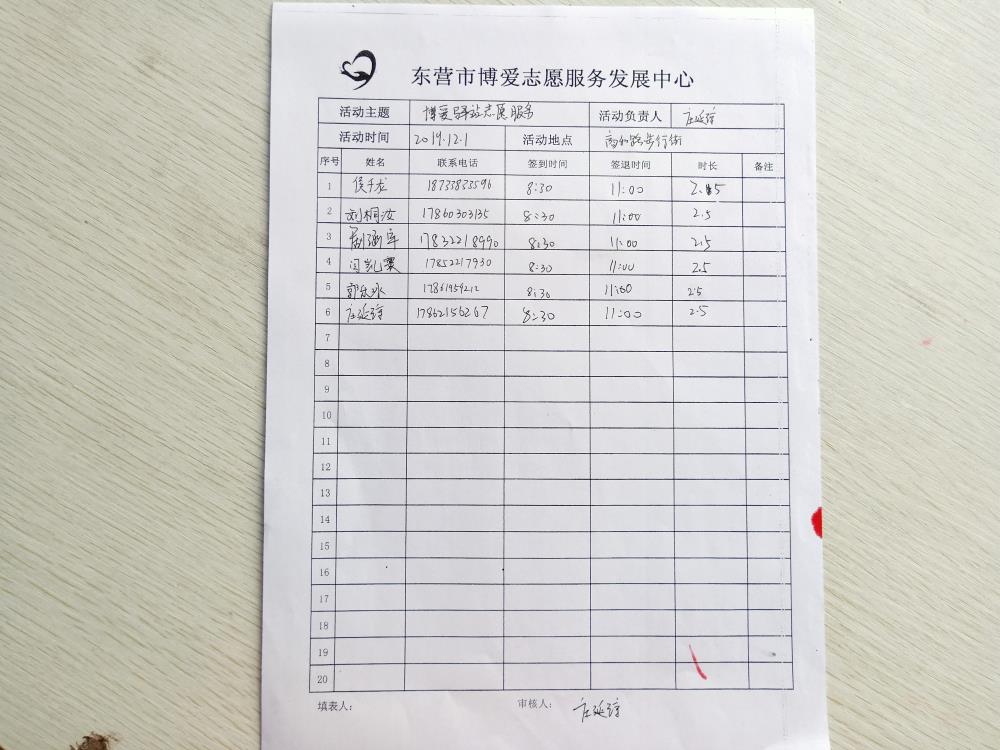 东营市博爱志愿服务发展中心
活动主题 博爱驿站志愿服务 活动负责人 庄延
活动时间 2019.12.1 活动地点 步行街
序号 姓名 联系电话 签到时间 签退时间 时长 备注
1 侯千龙 18733833596 8:30 11:00 2.5
2 刘桐汝 17860303135 8:30 11:00 2.5
3 17832218990 8:30 11:00 2.5
4 闫凯 17852217930 8:30 11:00 2.5
5 郭 17861959212 8:30 11:00 2.5
6 庄延 17862156267 8:30 11:00 2.5
7
8
9
10
11
12
13
14
15
16
17
18
19
20
填表人： 审核人： 庄延